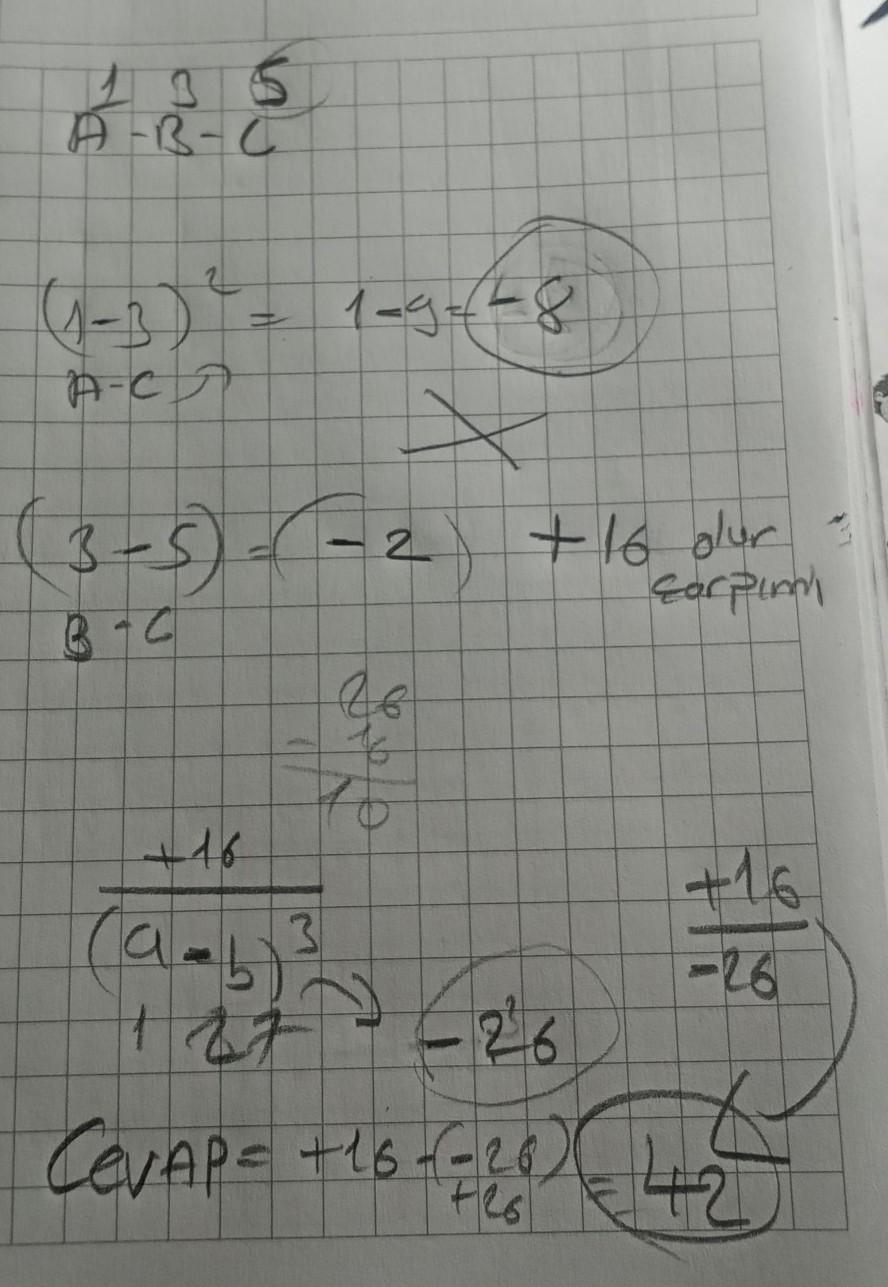 1 3 5
A - B - C
(1-3)² = 1-9 = -8
A-C
X
(3-5) = (-2) +16 olur
çarpımı
B-C
26
- 16
10
+16
(a-b)³
1 27 → -26
+16
-26
CEVAP = +16 -(-26) = 42
+26